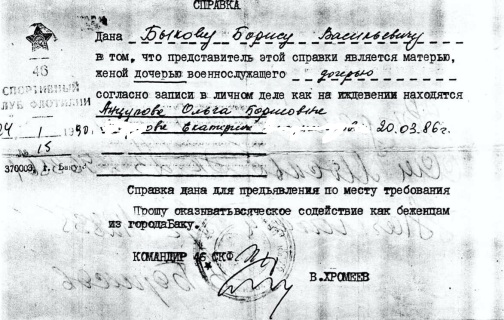 СПРАВКА
Дана Быкову Борису Васильевичу
в том, что представитель этой справки является матерью,
женой дочерью военнослужащего дочерью
согласно записи в личном деле как на иждевении находятся
46
СПОРТИВНЫЙ
КЛУБ ФЛОТИЛИИ
Анцупова Ольга Борисовна
24 1 1990
Екатерина 20.03.86г.
№ 15
370003, г. Баку
Справка дана для предьявления по месту требования
Прошу оказыватьвсяческое содействие как беженцам
из городаБаку.
КОМАНДИР 46 СКФ
В.ХРОМЕЕВ